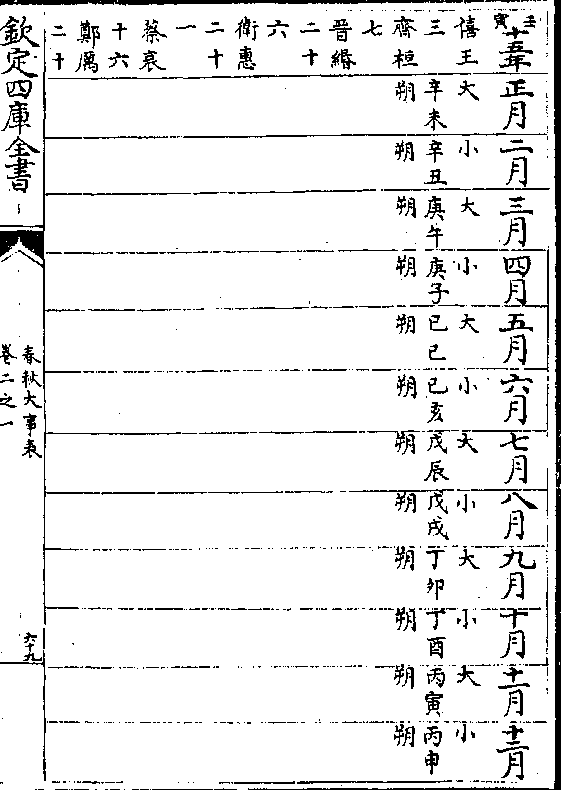 壬寅
十五年
僖王
三
齊桓
七
晉緡
二十
六
衛惠
二十
一
蔡哀
十六
鄭厲
二十
正月
大
辛未
朔
二月
小
辛丑
朔
三月
大
庚午
朔
四月
小
庚子
朔
五月
大
己巳
朔
六月
小
己亥
朔
七月
大
戊辰
朔
八月
小
戊戌
朔
九月
大
丁卯
朔
十月
小
丁酉
朔
十一月
大
丙寅
朔
十二月
小
丙申
朔
欽定四庫全書
春秋大事表
卷二之一
六十九